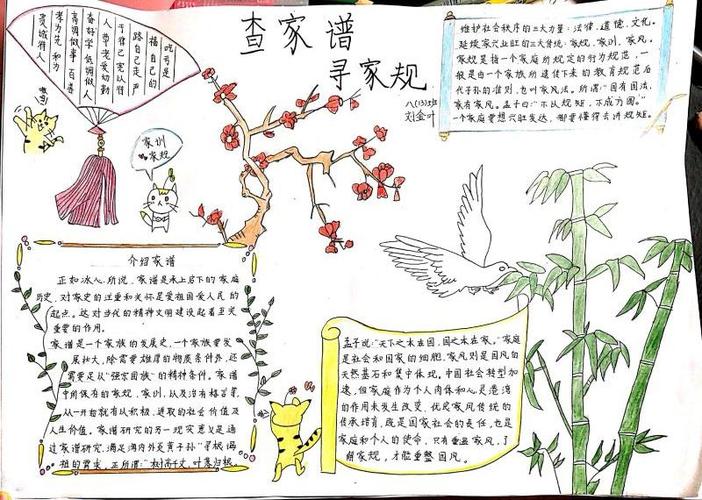 查家谱
寻家规
八(13)班
刘金叶
吃亏是
福自己的
路自己走严
于律己宽以待
人尊老爱幼勤
奋好学低调做人
高调做事百善
孝为先和为
贵诚待人
家训
家规
维护社会秩序的三大力量:法律,道德,文化。
延续家兴业旺的三大传统:家规,家训,家风。
家规是指一个家庭所规定的行为规范,一
般是由一个家族所遗传下来的教育规范后
代子孙的准则,也叫家风法。所谓:"国有国法,
家有家风。孟子曰:"不从规矩,不成方圆。"
一个家庭要想兴旺发达,懂得去讲规矩。
介绍家谱
正如冰心所说,家谱是承上启下的家庭
历史,对家史的注重和关怀是爱祖国爱人民的
起点。这对当代的精神文明建设起着至关
重要的作用。
家谱是一个家族的发展史,一个家族要发
展壮大,除需要雄厚的物质条件外,还
需要足以"强宗固族"的精神条件。家谱
中所保有的家规,家训,以及治有格言等
从一开始就有从积极,进取的社会价值及
人生价值。家谱研究的另一现实意义是通
过家谱研究,满足海内外炎黄子孙"寻根问
祖的需求。正所谓:"树高千丈,叶落归根。
孟子说:"天下之本在国,国之本在家。"家庭
是社会和国家的细胞。家风则是国风的
天然基石和集中体现。中国社会转型加
速,但家庭作为个人肉体和心灵港湾
的作用未发生改变,优良家风传统的
传承培育,既是国家社会的责任,也是
家庭和个人的使命,只有重温家风,了
解家规,才能重整国风。